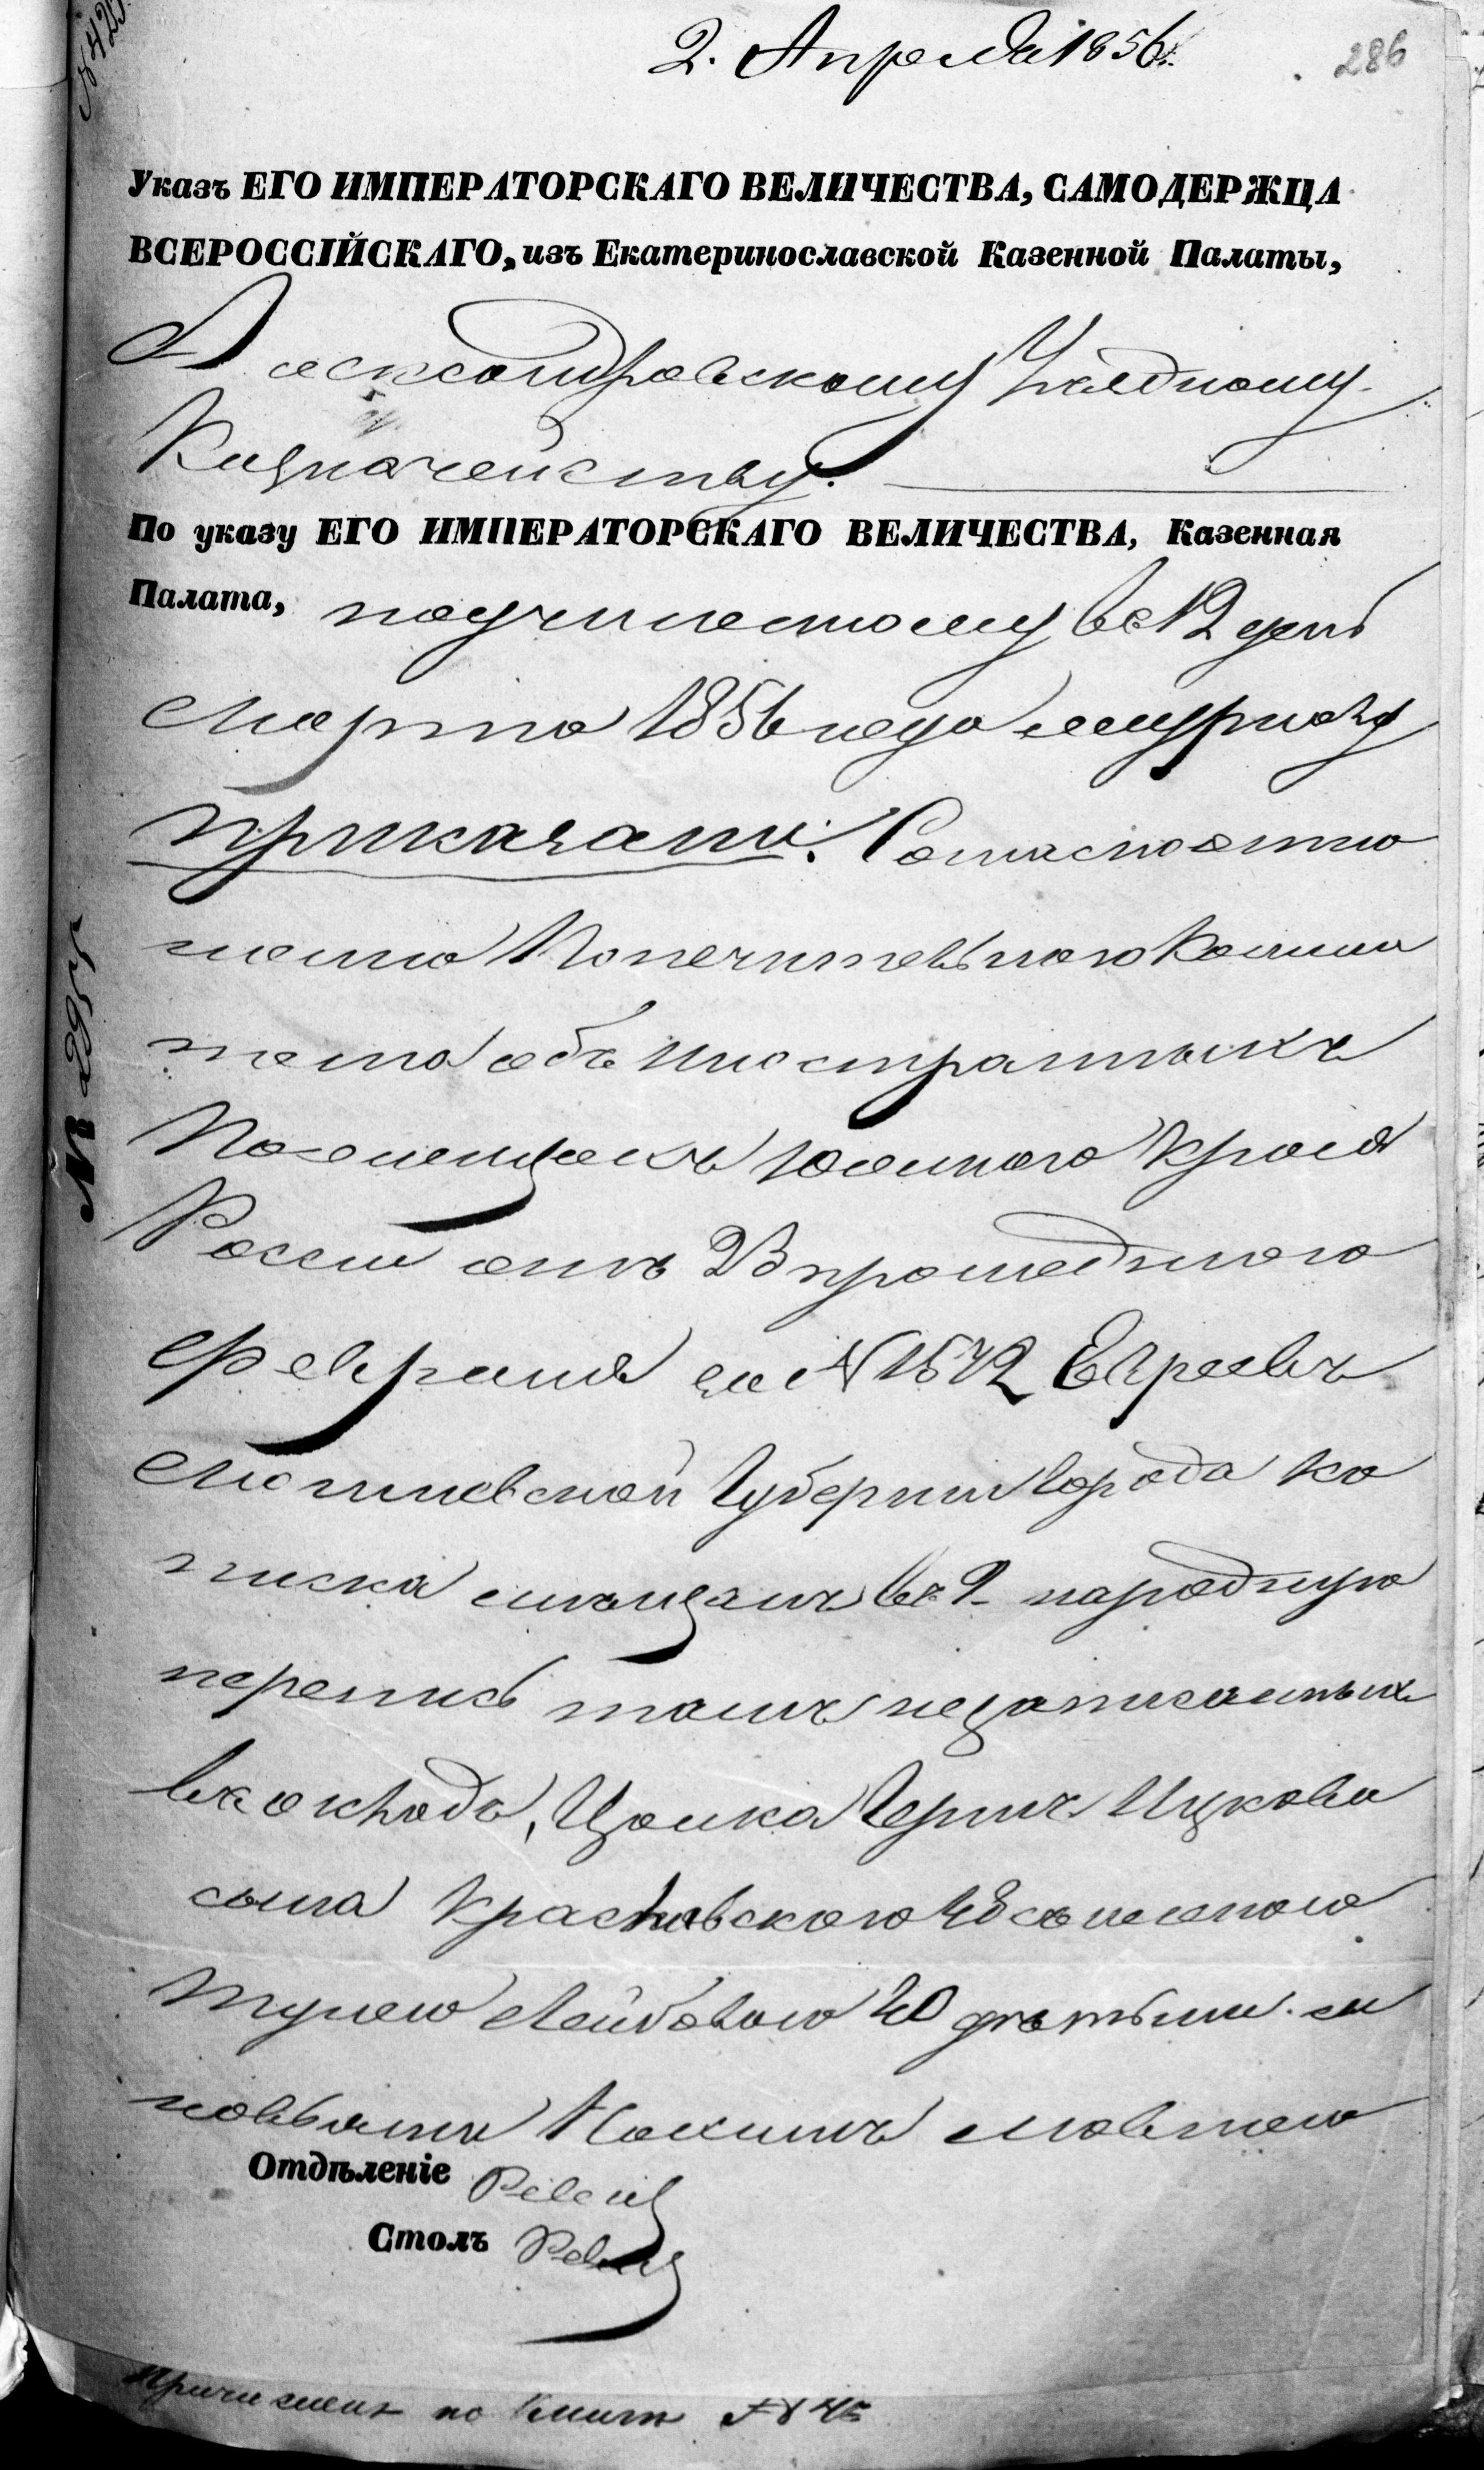 2. Апреля 1856.
286
Указъ ЕГО ИМПЕРАТОРСКАГО ВЕЛИЧЕСТВА, САМОДЕРЖЦА
ВСЕРОССІЙСКАГО, изъ Екатеринославской Казенной Палаты,
Александровскому Уѣздному
Казначейству.
По указу ЕГО ИМПЕРАТОРСКАГО ВЕЛИЧЕСТВА, Казенная
Палата, по учиненному въ 12 день
Марта 1856 года журналу
приказали: Согласно отно
шенію Попечительнаго Коми
тета объ иностранныхъ
Поселенцахъ Южнаго Края
Россіи отъ 23 прошедшаго
Февраля за № 1572 Евреевъ
Могилевской Губерніи города Ко
пыска мѣщанъ въ 9 народную
перепись тамъ незаписанныхъ
въ окладъ, Цемка Герша Ицкова
сына Краснявского 48 съ женою
Лейбовою 40 дѣтьми: сы
новьями
Отдѣленіе Ревиз
Столъ Ревиз
№
Причислены по книгѣ №